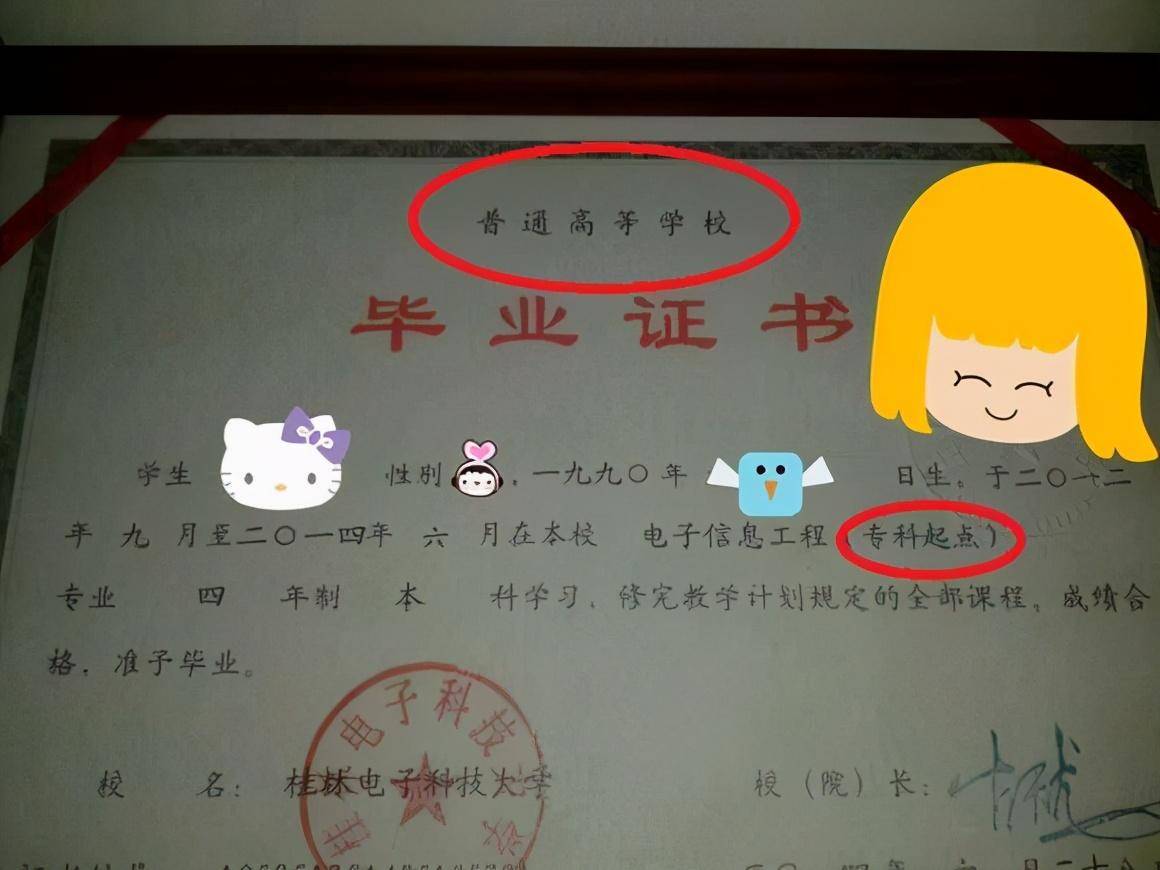 普通高等学校
毕业证书
学生 性别 ，一九九〇年 日生，于二〇一二
年 九 月至二〇一四年 六 月在本校 电子信息工程（专科起点）
专业 四 年制 本 科学习，修完教学计划规定的全部课程，成绩合
格，准予毕业。
电子科技
校 名：桂林电子科技大学 校（院）长：